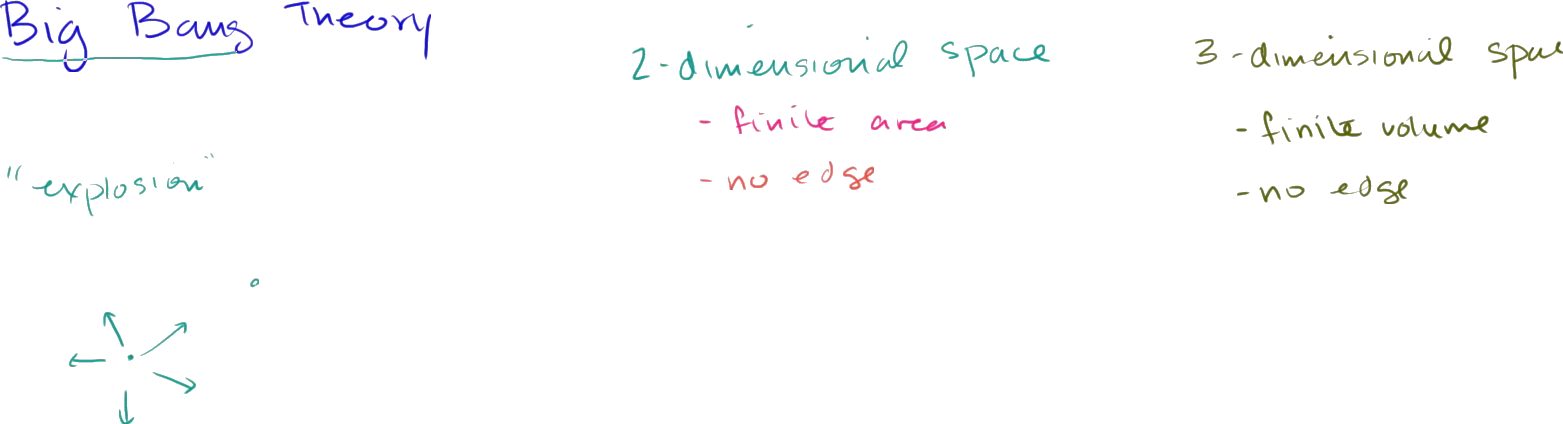 Big Bang Theory
"explosion"
2-dimensional space
- finite area
- no edge
3-dimensional spac
- finite volume
- no edge